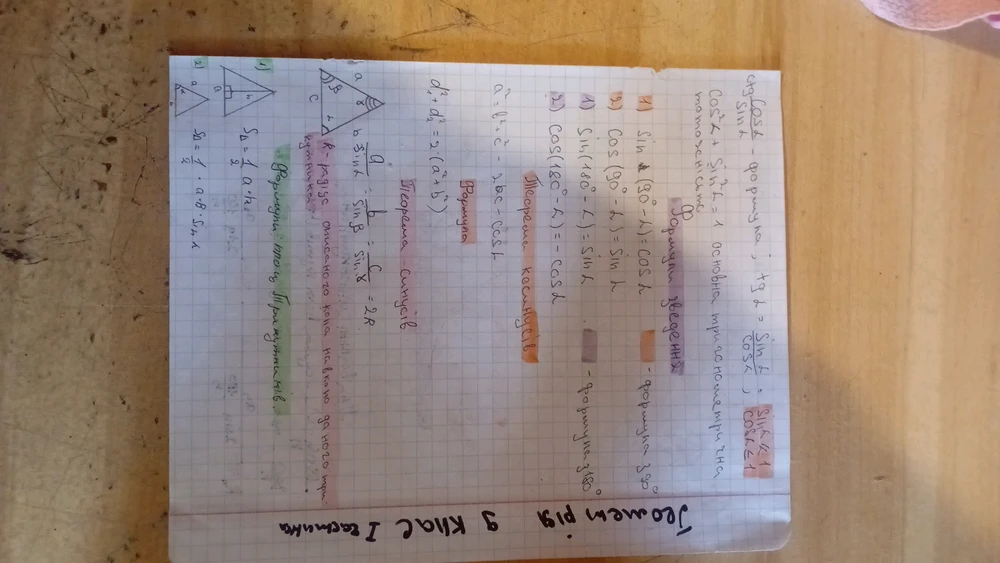 Геометрія 9 клас I частина
ctg cosα/sinα - формула ; tg α = sin α/cos α ; sin α ≤ 1 cos α ≤ 1
cos²α + sin²α = 1 основна тригонометрична
тотожність
Формули зведення
1) sin (90° - α) = cos α - формула з 90°
2) cos (90° - α) = sin α
1) sin (180° - α) = sin α - формула з 180°
2) cos (180° - α) = - cos α
Теорема косинусів
a² = b² + c² - 2bc - cos α
Формула
d₁² + d₂² = 2·(a² + b²)
Теорема синусів
a/sin α = b/sin β = c/sin γ = 2R
a β γ b c α
R - радіус описаного кола навколо даного три
кутника
Формули площ трикутників.
1) h a S∆ = 1/2 a · h
2) a S∆ = 1/2 · a · b · sin